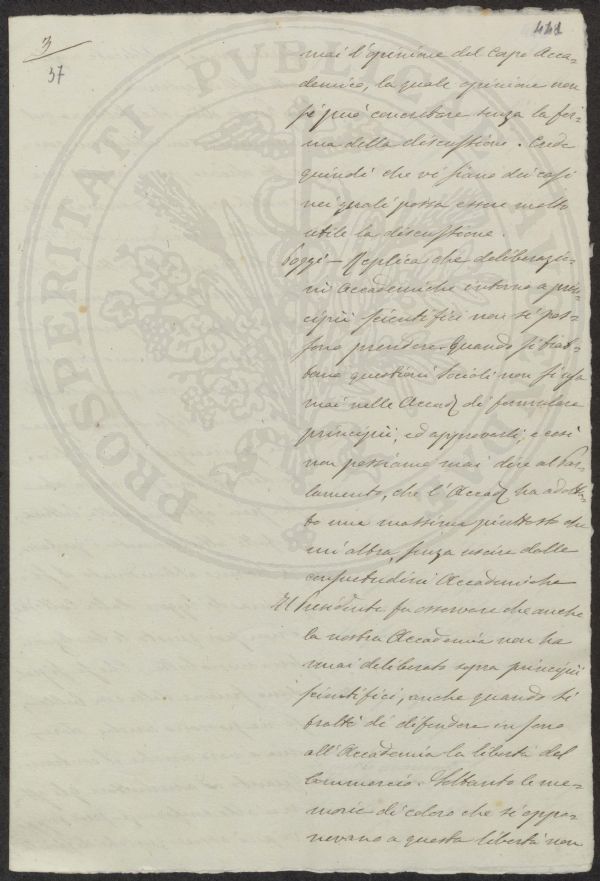 3
37
441
mai l'opinione del Corpo Acca-
demico, la quale opinione non
si può concretare senza la for-
ma della discussione. Crede
quindi che vi siano dei casi
nei quali possa essere molto
utile la discussione.
Poggi — Replica che deliberazio-
ni Accademiche intorno a prin-
cipii scientifici non si pos-
sono prendere. Quando si trat-
tano questioni sociali non si usa
mai nelle Accad. di formulare
principii, ed approvarli, e così
non possiamo mai dire al Par-
lamento, che l'Accad. ha adotta-
to una massima piuttosto che
un'altra, senza uscire dalle
consuetudini Accademiche
Il Presidente fa osservare che anche
la nostra Accademia non ha
mai deliberato sopra principii
scientifici, anche quando si
trattò di difendere in seno
all'Accademia la libertà del
Commercio. Soltanto le me-
morie di coloro che si oppo-
nevano a questa libertà non
PROSPERITATI PVBLICAE AVGENDAE